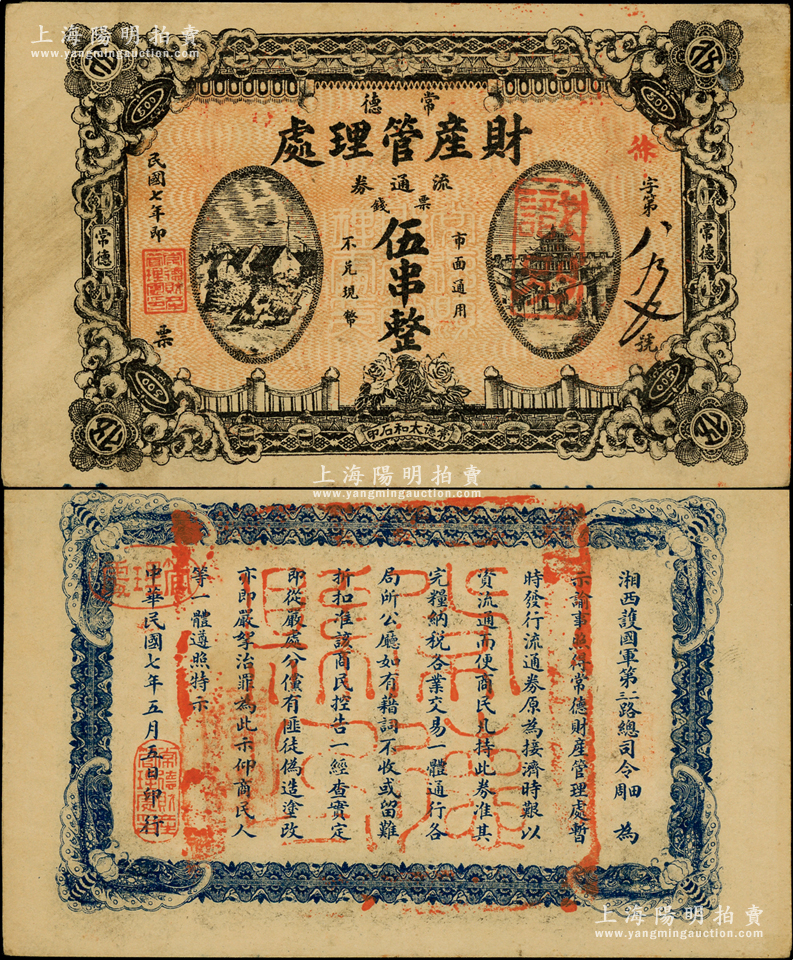 上海陽明拍賣
www.yangmingauction.com
常德
財產管理處
流通券
票錢
伍串整
市面通用
不兑現幣
徐
字第
號
民國七年印
票
常德
常德
500
500
500
500
常德太和石印
上海陽明拍賣
www.yangmingauction.com
湘西護國軍第二三路總司令田周為
示諭事照得常德財產管理處暫
時發行流通券原為接濟時艱以
資流通而便商民凡持此券准其
完糧納税各業交易一體通行各
局所公廳如有藉詞不收或留難
折扣准該商民控告一經查實定
即從嚴處分儻有匪徒偽造塗改
亦即嚴拏治罪為此示仰商民人
等一體遵照特示
中華民國七年五月五日印行
上海陽明拍賣
www.yangmingauction.com